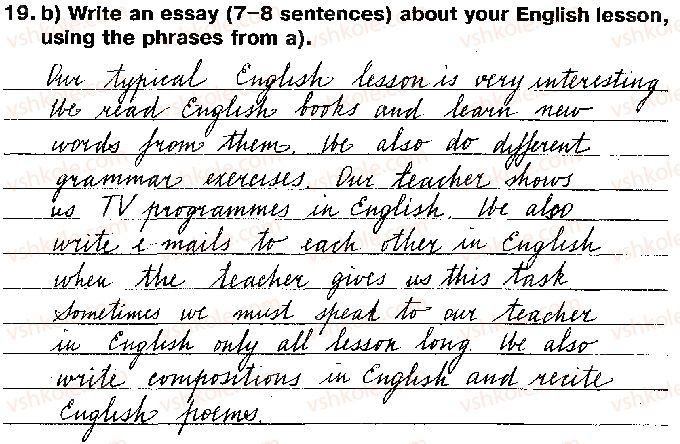 19. b) Write an essay (7–8 sentences) about your English lesson,
using the phrases from a).
Our typical English lesson is very interesting
We read English books and learn new
words from them. We also do different
grammar exercises. Our teacher shows
us TV programmes in English. We also
write e-mails to each other in English
when the teacher gives us this task
Sometimes we must speak to our teacher
in English only all lesson long. We also
write compositions in English and recite
English poems.